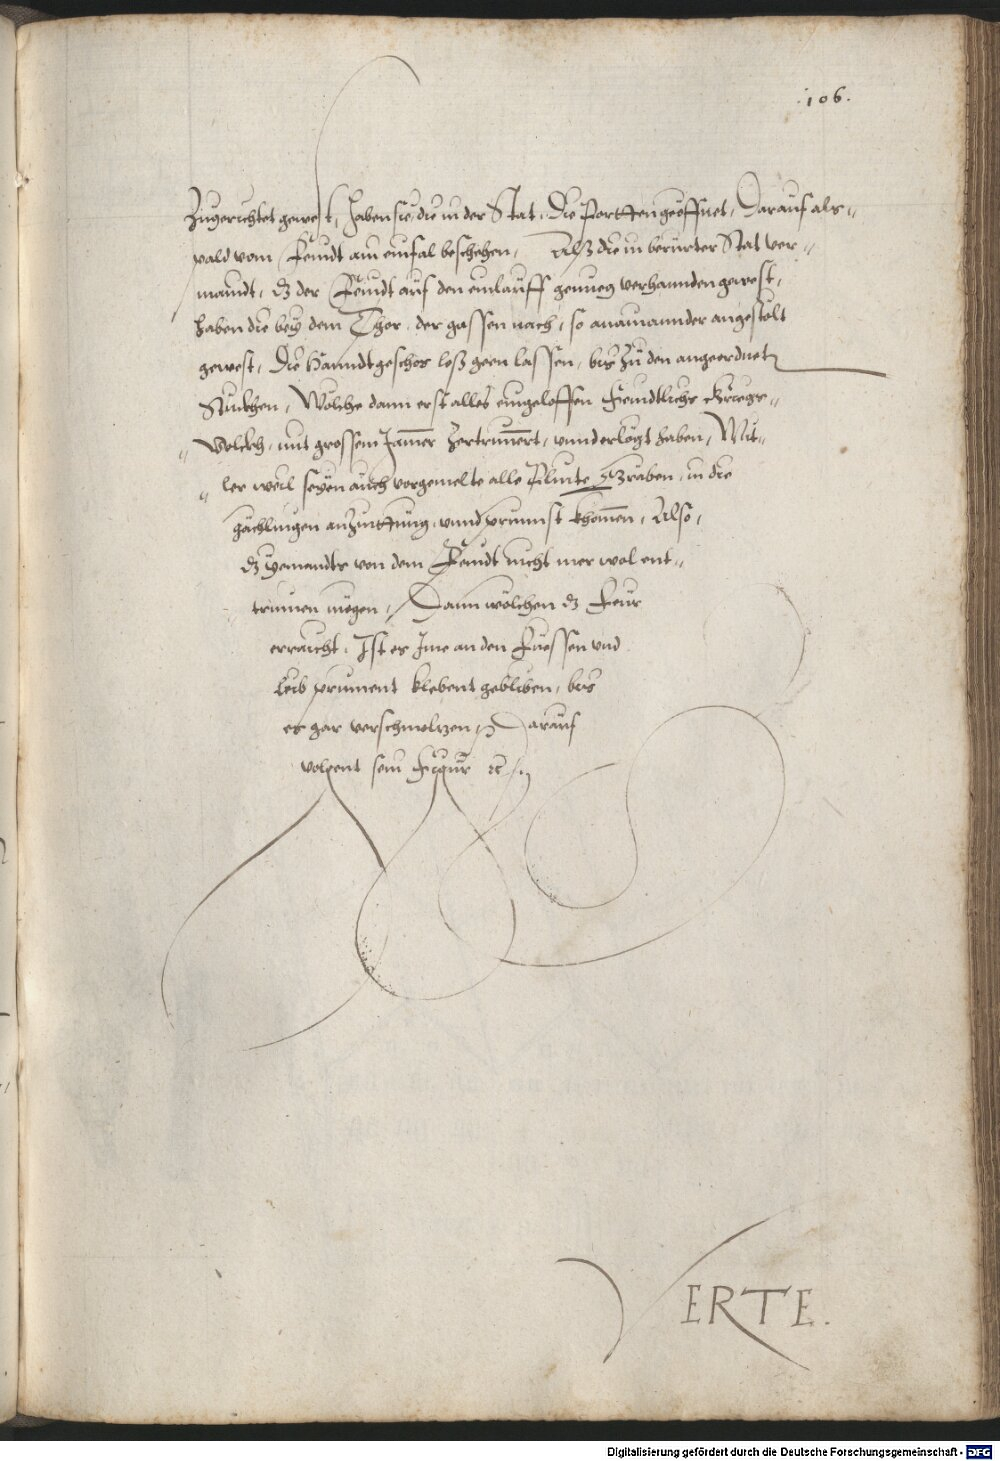 .106.
Zŭgerichtet gewest, haben sie, die in der Stat, Die Portten geöffnet, Darauf als-
pald vom Feindt ain einfal beschehen, Alß die in berürter Stat ver-
maindt, dz der Feindt auf den einlauff genueg verhannden gewest,
haben die bey dem Thor, der gassen nach, so anainannder angestölt
gewest, Die Hanndtgeschos loß geen lassen, bis Zŭ den angeordnet
Stuckhen, Wölche dann erst alles eingeloffen Feindtlichs Kriegs-
volckh, mit grossem Jamer Zertrümert, unnd erlögt haben, Mit-
ler weil seyen auch vorgemelte alle Pluite Graben, in die
gächlingen anZinttŭng, unnd prunnst khomen, Also,
dz yemandts von dem Feindt nicht mer wol ent-
trinnen mögen, Dann wölchen dz Feur
erraicht, Ist es Ime an den Fuessen und
Leib prinnent klebent gebliben, bis
er gar verschmoltzen, Darauf
volgent sein Figur ꝛc
VERTE.
Digitalisierung gefördert durch die Deutsche Forschungsgemeinschaft - DFG